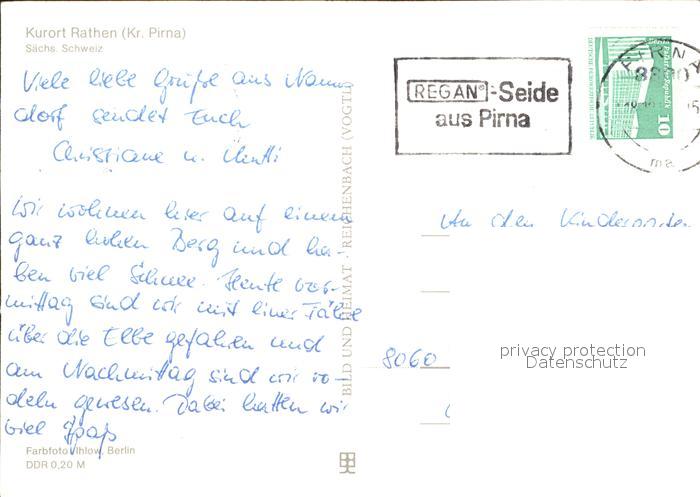 Kurort Rathen (Kr. Pirna)
Sächs. Schweiz
Viele liebe Grüße aus
dorf sendet Euch
Christiane u.
Wir wohnen hier auf einem
ganz hohen Berg und ha-
ben viel Schnee. Heute vor-
mittag sind wir mit einer Fähre
über die Elbe gefahren und
am Nachmittag sind wir ro-
deln gewesen. Dabei hatten wir
viel Spaß
Farbfoto Ihlow, Berlin
DDR 0,20 M
BILD UND HEIMAT · REICHENBACH (VOGTL)
REGAN®-Seide
aus Pirna
PIRNA
10
An den Kindergarten
8060
privacy protection
Datenschutz